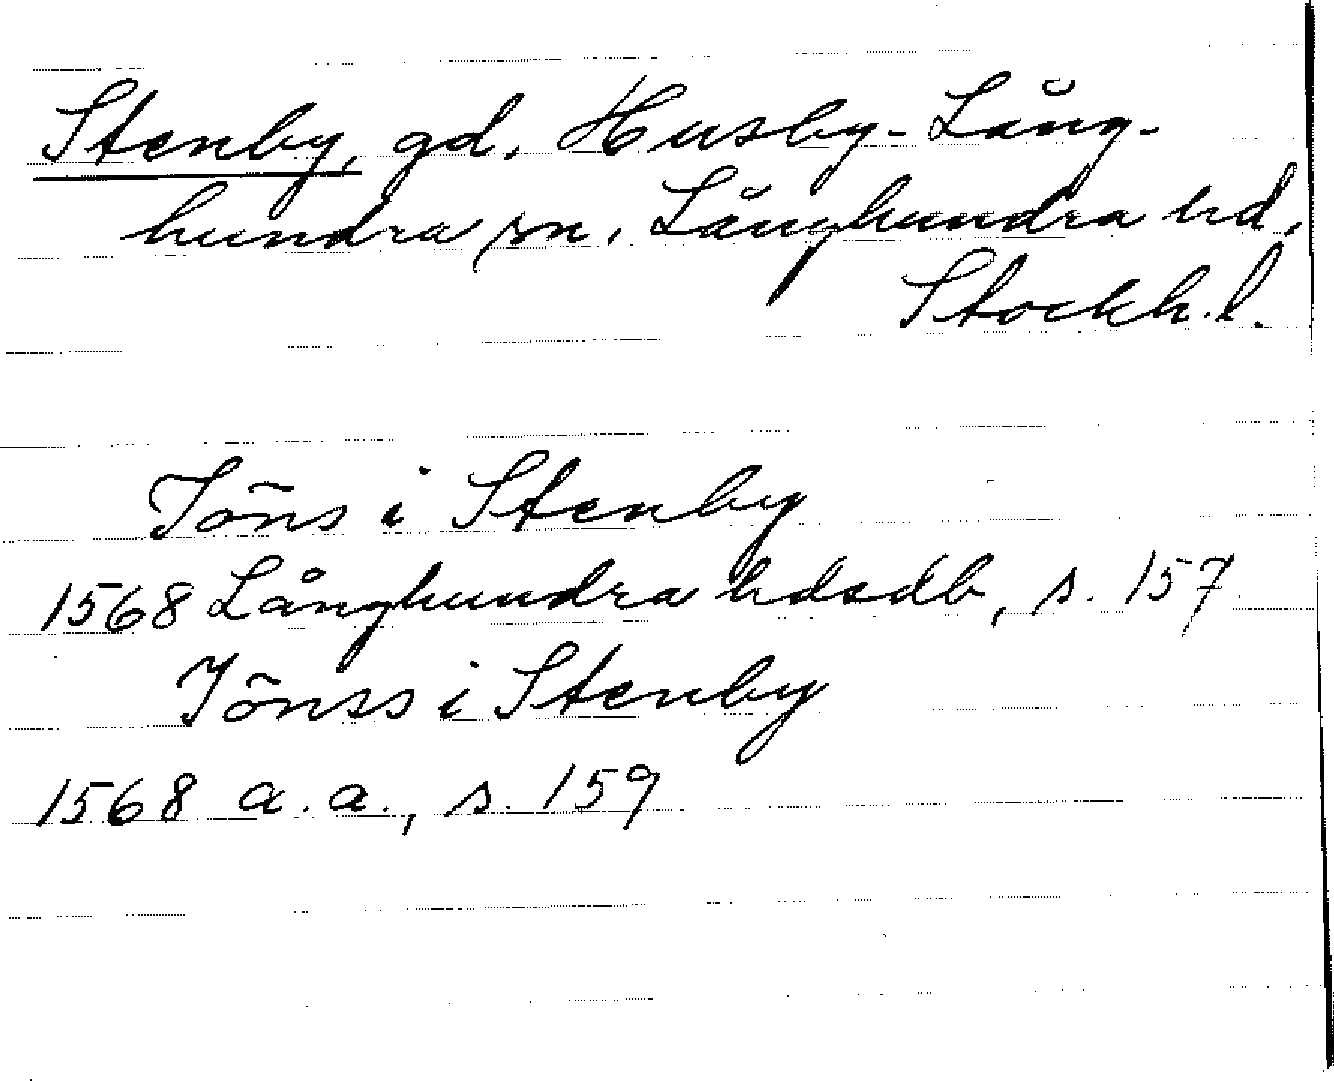 Stenby, gd. Husby-Lång-
hundra sn. Långhundra hd,
Stockh. l.
Jöns i Stenby
1568 Långhundra hdsdb, s. 157
Jönss i Stenby
1568 a. a., s. 159